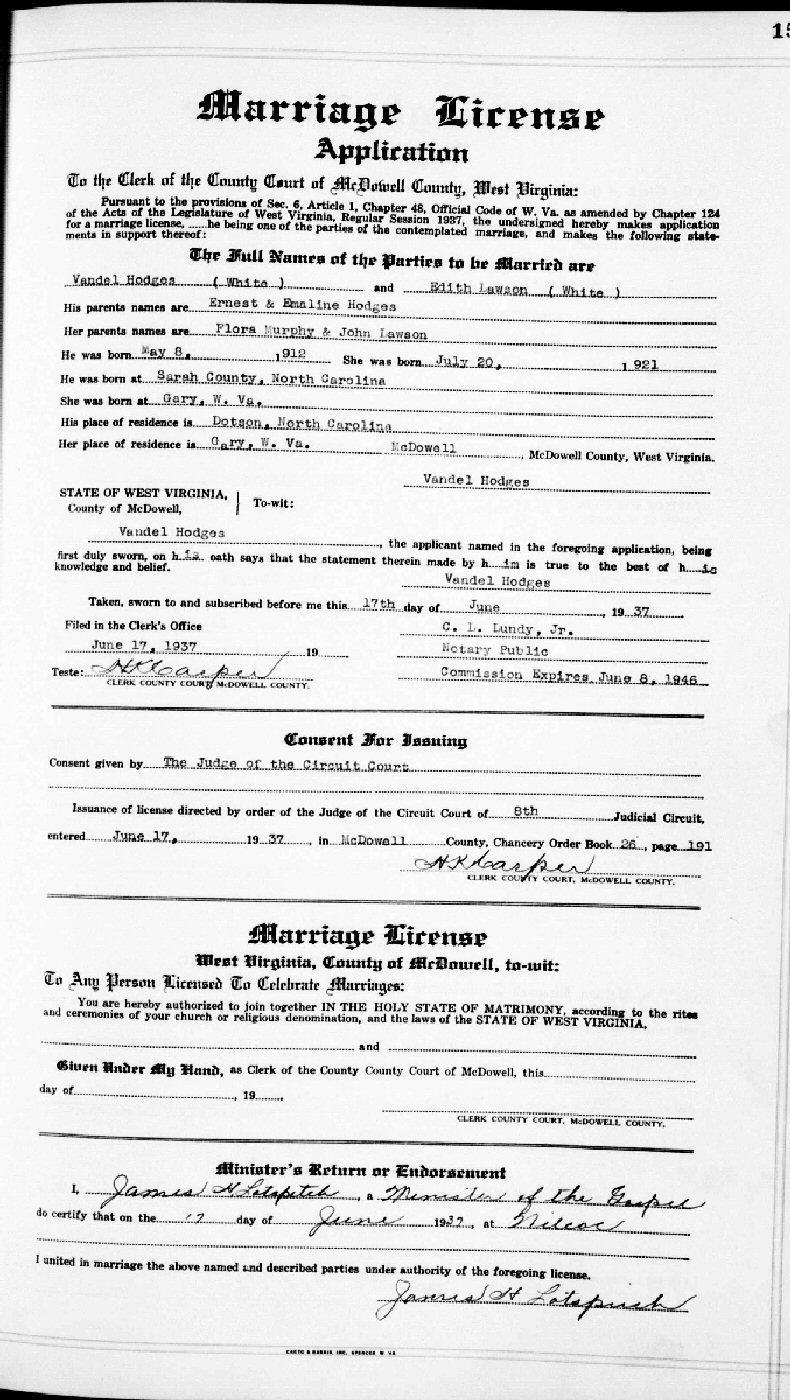 15
Marriage License
Application
To the Clerk of the County Court of McDowell County, West Virginia:
Pursuant to the provisions of Sec. 6, Article 1, Chapter 48, Official Code of W. Va. as amended by Chapter 124
of the Acts of the Legislature of West Virginia, Regular Session 1937, the undersigned hereby makes application
for a marriage license, ......he being one of the parties of the contemplated marriage, and makes the following state-
ments in support thereof:
The Full Names of the Parties to be Married are
Vandel Hodges ( White ) and Edith Lawson ( White )
His parents names are Ernest & Emaline Hodges
Her parents names are Flora Murphy & John Lawson
He was born May 8, 1912 She was born July 20, 1921
He was born at Sarah County, North Carolina
She was born at Gary, W. Va.
His place of residence is Dotson, North Carolina
Her place of residence is Gary, W. Va. McDowell , McDowell County, West Virginia.
Vandel Hodges
STATE OF WEST VIRGINIA,
County of McDowell, To-wit:
Vandel Hodges , the applicant named in the foregoing application, being
first duly sworn, on h is oath says that the statement therein made by h im is true to the best of h is
knowledge and belief.
Vandel Hodges
Taken, sworn to and subscribed before me this 17th day of June , 19 37
Filed in the Clerk's Office C. L. Lundy, Jr.
June 17, 1937 19 Notary Public
Teste: H K Carper Commission Expires June 8, 1946
CLERK COUNTY COURT, McDOWELL COUNTY.
Consent For Issuing
Consent given by The Judge of the Circuit Court
Issuance of license directed by order of the Judge of the Circuit Court of 8th Judicial Circuit,
entered June 17, 19 37 , in McDowell County, Chancery Order Book 26 , page 191
H K Carper
CLERK COUNTY COURT, McDOWELL COUNTY.
Marriage License
West Virginia, County of McDowell, to-wit:
To Any Person Licensed To Celebrate Marriages:
You are hereby authorized to join together IN THE HOLY STATE OF MATRIMONY, according to the rites
and ceremonies of your church or religious denomination, and the laws of the STATE OF WEST VIRGINIA,
and
Given Under My Hand, as Clerk of the County County Court of McDowell, this
day of , 19
CLERK COUNTY COURT, McDOWELL COUNTY.
Minister's Return or Endorsement
I, James H Lotspitch , a Minister of the Gospel
do certify that on the 17 day of June 1937 , at Wilcoe
I united in marriage the above named and described parties under authority of the foregoing license.
James H Lotspiich